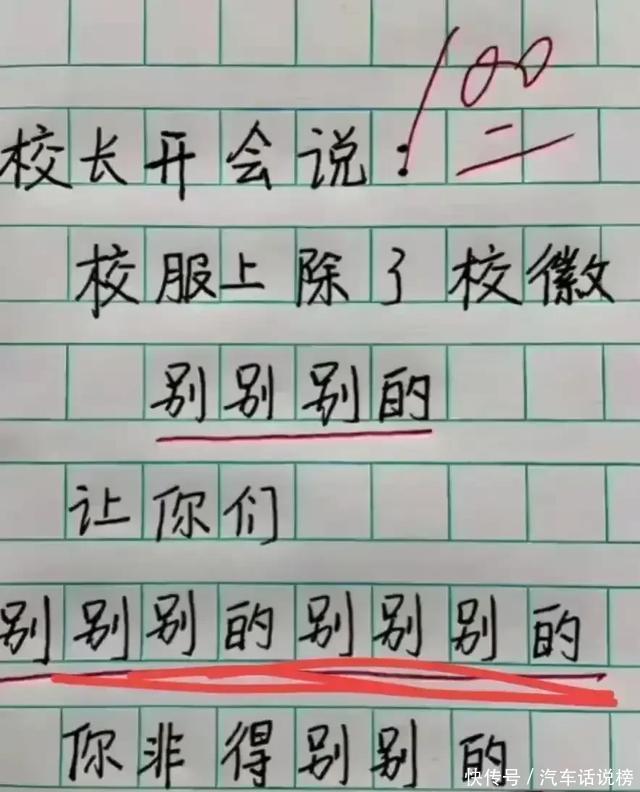 100
校长开会说：
校服上除了校徽
别别别的
让你们
别别别的别别别的
你非得别别的
快传号/汽车话说榜